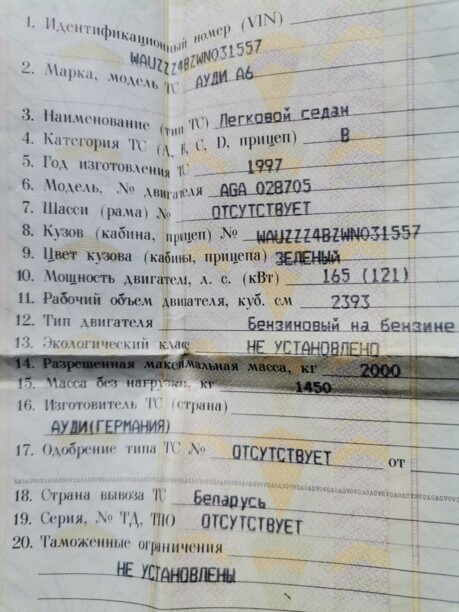 1. Идентификационный номер (VIN)
WAUZZZ4BZWN031557
2. Марка, модель ТС АУДИ А6
3. Наименование (тип ТС) Легковой седан
4. Категория ТС (A, B, C, D, прицеп) В
5. Год изготовления ТС 1997
6. Модель, № двигателя AGA 028705
7. Шасси (рама) № ОТСУТСТВУЕТ
8. Кузов (кабина, прицеп) № WAUZZZ4BZWN031557
9. Цвет кузова (кабины, прицепа) ЗЕЛЕНЫЙ
10. Мощность двигателя, л. с. (кВт) 165 (121)
11. Рабочий объем двигателя, куб. см 2393
12. Тип двигателя Бензиновый на бензине
13. Экологический класс НЕ УСТАНОВЛЕНО
14. Разрешенная максимальная масса, кг 2000
15. Масса без нагрузки, кг 1450
16. Изготовитель ТС (страна)
АУДИ(ГЕРМАНИЯ)
17. Одобрение типа ТС № ОТСУТСТВУЕТ от
18. Страна вывоза ТС Беларусь
19. Серия, № ТД, ТПО ОТСУТСТВУЕТ
20. Таможенные ограничения
НЕ УСТАНОВЛЕНЫ